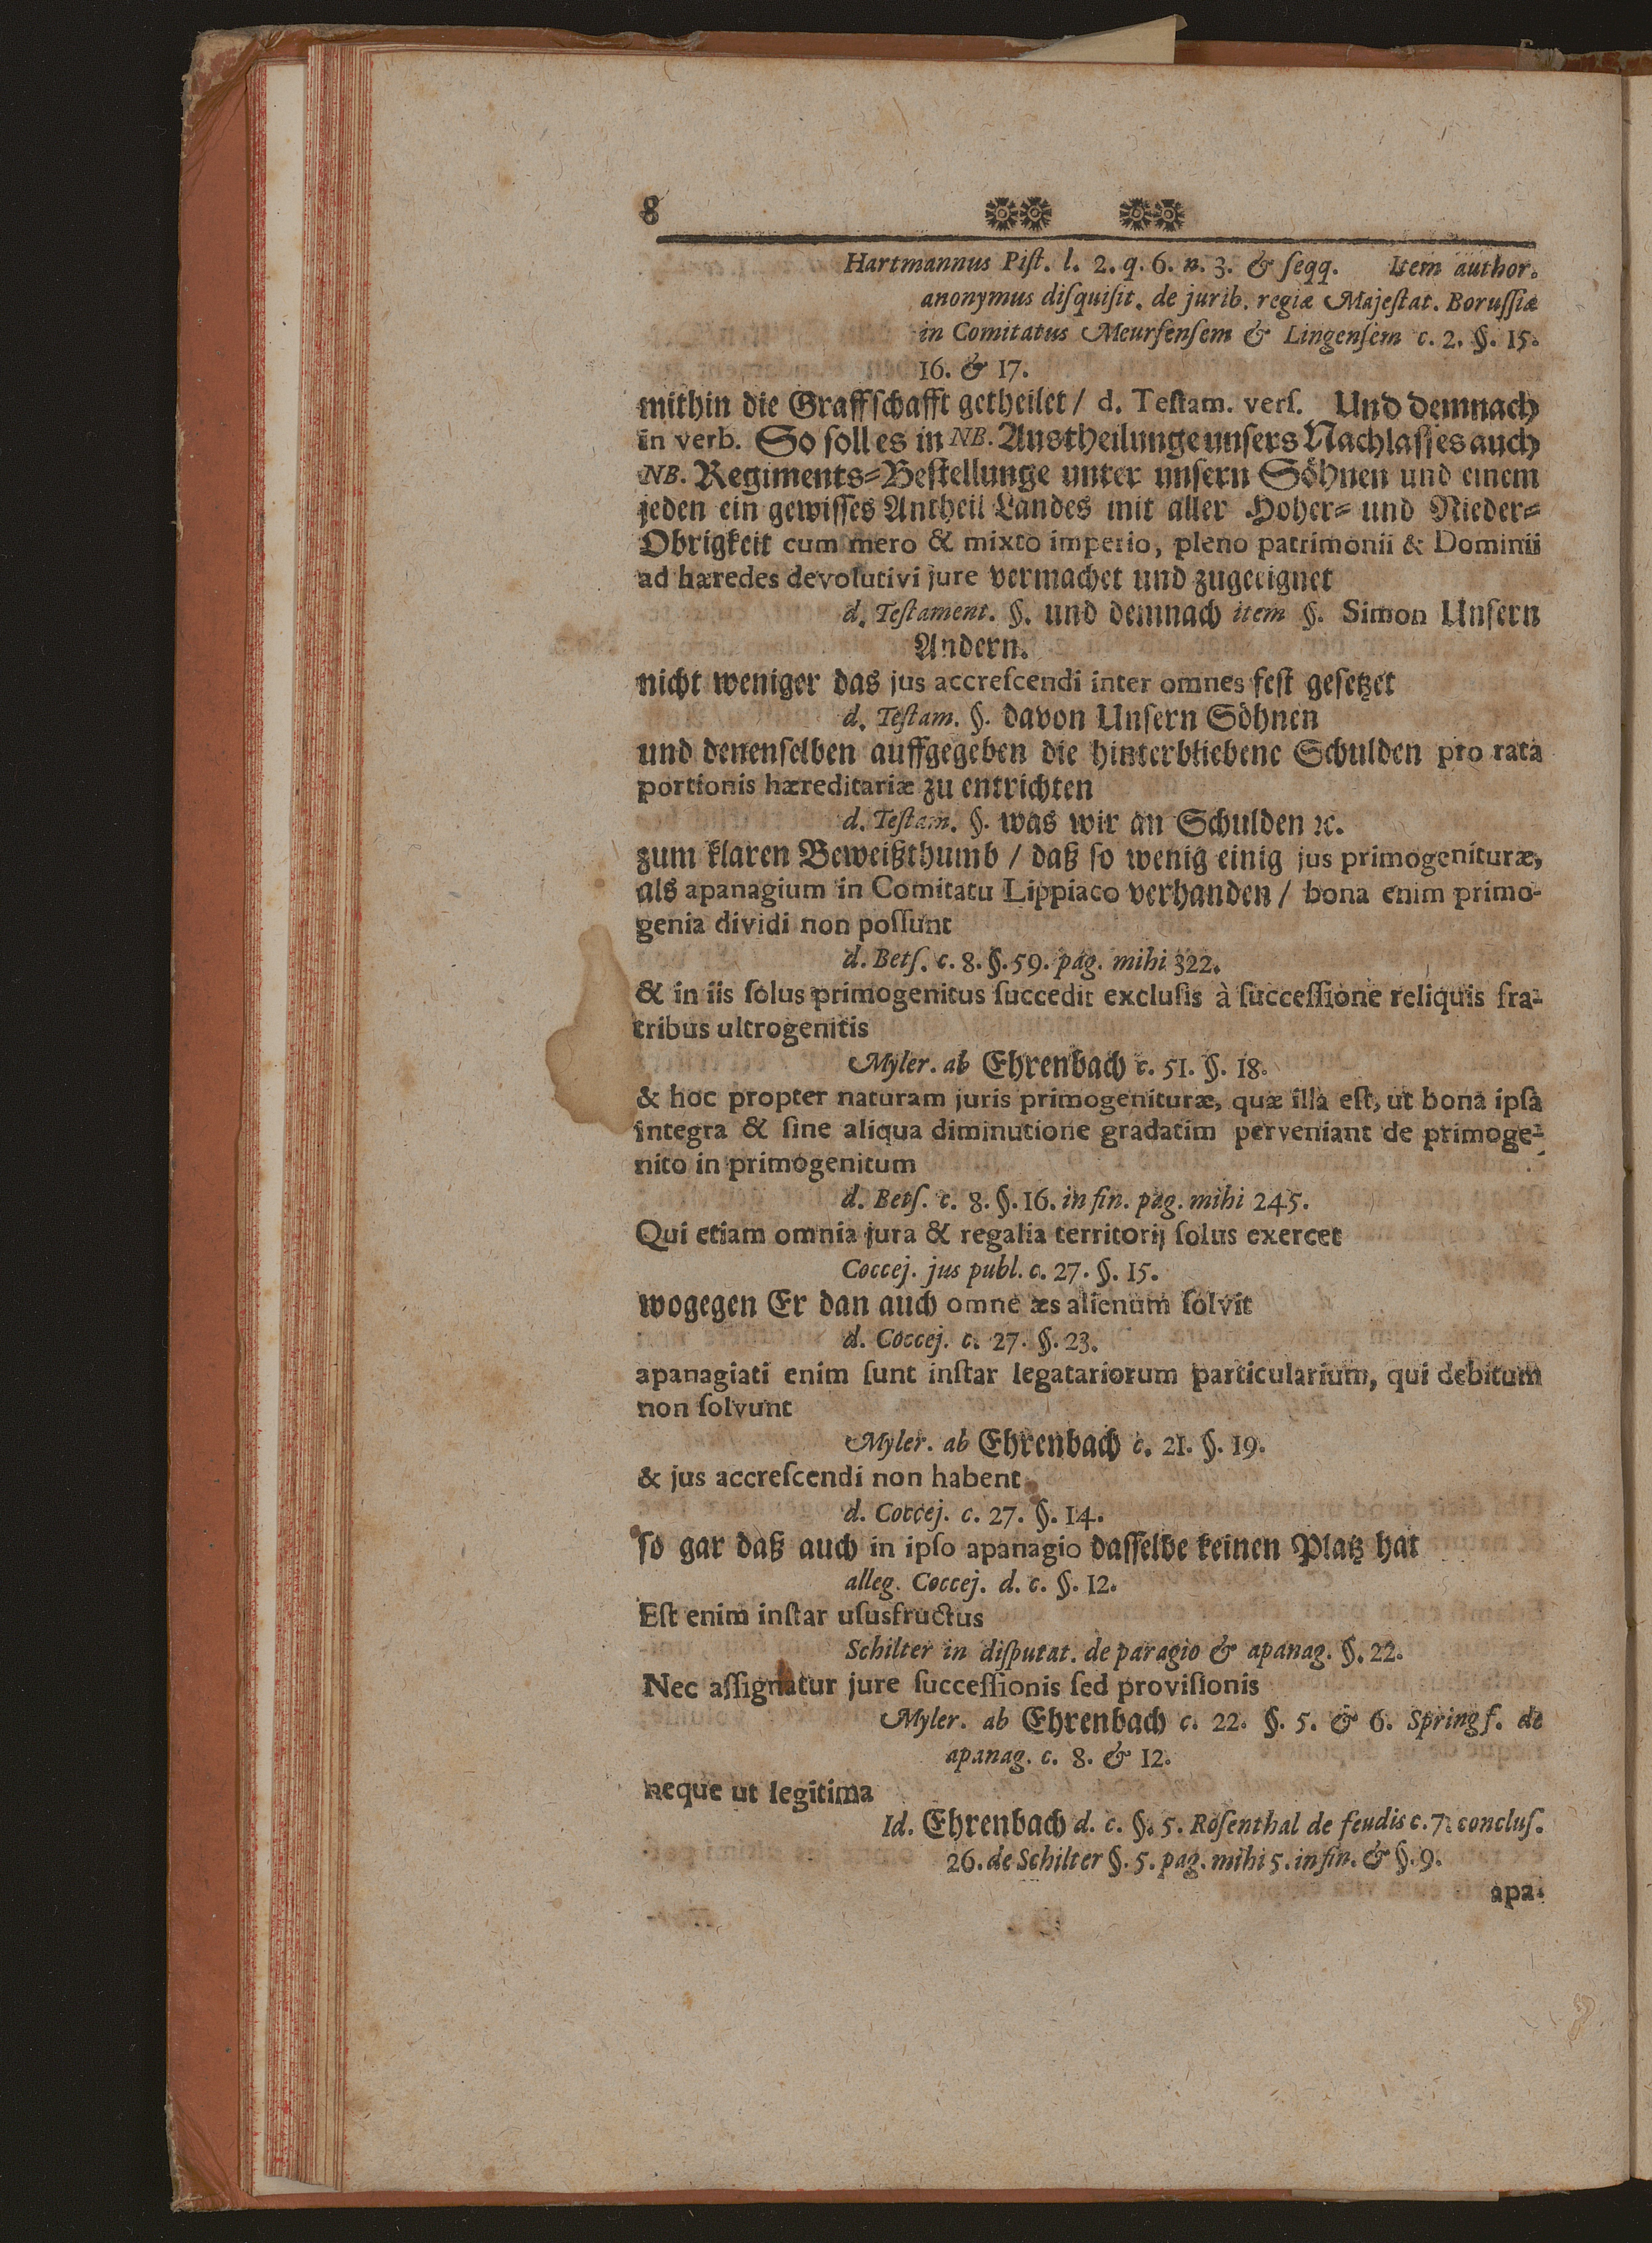 8
Hartmannus Piſt. l. 2. q. 6. n. 3. & ſeqq. Item author.
anonymus diſquiſit. de jurib. regiæ Majeſtat. Boruſſiæ
in Comitatus Meurſenſem & Lingenſem c. 2. §. 15.
16. & 17.
mithin die Graffſchafft getheilet / d. Teſtam. verſ. Und demnach
in verb. So ſoll es in NB. Austheilunge unſers Nachlaſſes auch
NB. Regiments-Beſtellunge unter unſern Söhnen und einem
jeden ein gewiſſes Antheil Landes mit aller Hoher- und Nieder-
Obrigkeit cum mero & mixto imperio, pleno patrimonii & Dominii
ad hæredes devolutivi jure vermachet und zugeeignet
d. Teſtament. §. und demnach item §. Simon Unſern
Andern.
nicht weniger das jus accreſcendi inter omnes feſt geſetzet
d. Teſtam. §. davon Unſern Söhnen
und denenſelben auffgegeben die hinterbliebene Schulden pro rata
portionis hæreditariæ zu entrichten
d. Teſtam. §. was wir an Schulden ꝛc.
zum klaren Beweißthumb / daß ſo wenig einig jus primogenituræ,
als apanagium in Comitatu Lippiaco verhanden / bona enim primo-
genia dividi non poſſunt
d. Betſ. c. 8. §. 59. pag. mihi 322.
& in iis ſolus primogenitus ſuccedit excluſis à ſucceſſione reliquis fra-
tribus ultrogenitis
Myler. ab Ehrenbach c. 51. §. 18.
& hoc propter naturam juris primogenituræ, quæ illa eſt, ut bona ipſa
integra & ſine aliqua diminutione gradatim perveniant de primoge-
nito in primogenitum
d. Betſ. c. 8. §. 16. in fin. pag. mihi 245.
Qui etiam omnia jura & regalia territorij ſolus exercet
Coccej. jus publ. c. 27. §. 15.
wogegen Er dan auch omne æs alienum ſolvit
d. Coccej. c. 27. §. 23.
apanagiati enim ſunt inſtar legatariorum particularium, qui debitum
non ſolvunt
Myler. ab Ehrenbach c. 21. §. 19.
& jus accreſcendi non habent
d. Coccej. c. 27. §. 14.
ſo gar daß auch in ipſo apanagio daſſelbe keinen Platz hat
alleg. Coccej. d. c. §. 12.
Eſt enim inſtar uſusfructus
Schilter in diſputat. de paragio & apanag. §. 22.
Nec aſſignatur jure ſucceſſionis ſed proviſionis
Myler. ab Ehrenbach c. 22. §. 5. & 6. Springſ. de
apanag. c. 8. & 12.
neque ut legitima
Id. Ehrenbach d. c. §. 5. Roſenthal de feudis c. 7. concluſ.
26. de Schilter §. 5. pag. mihi 5. in fin. & §. 9.
apa-